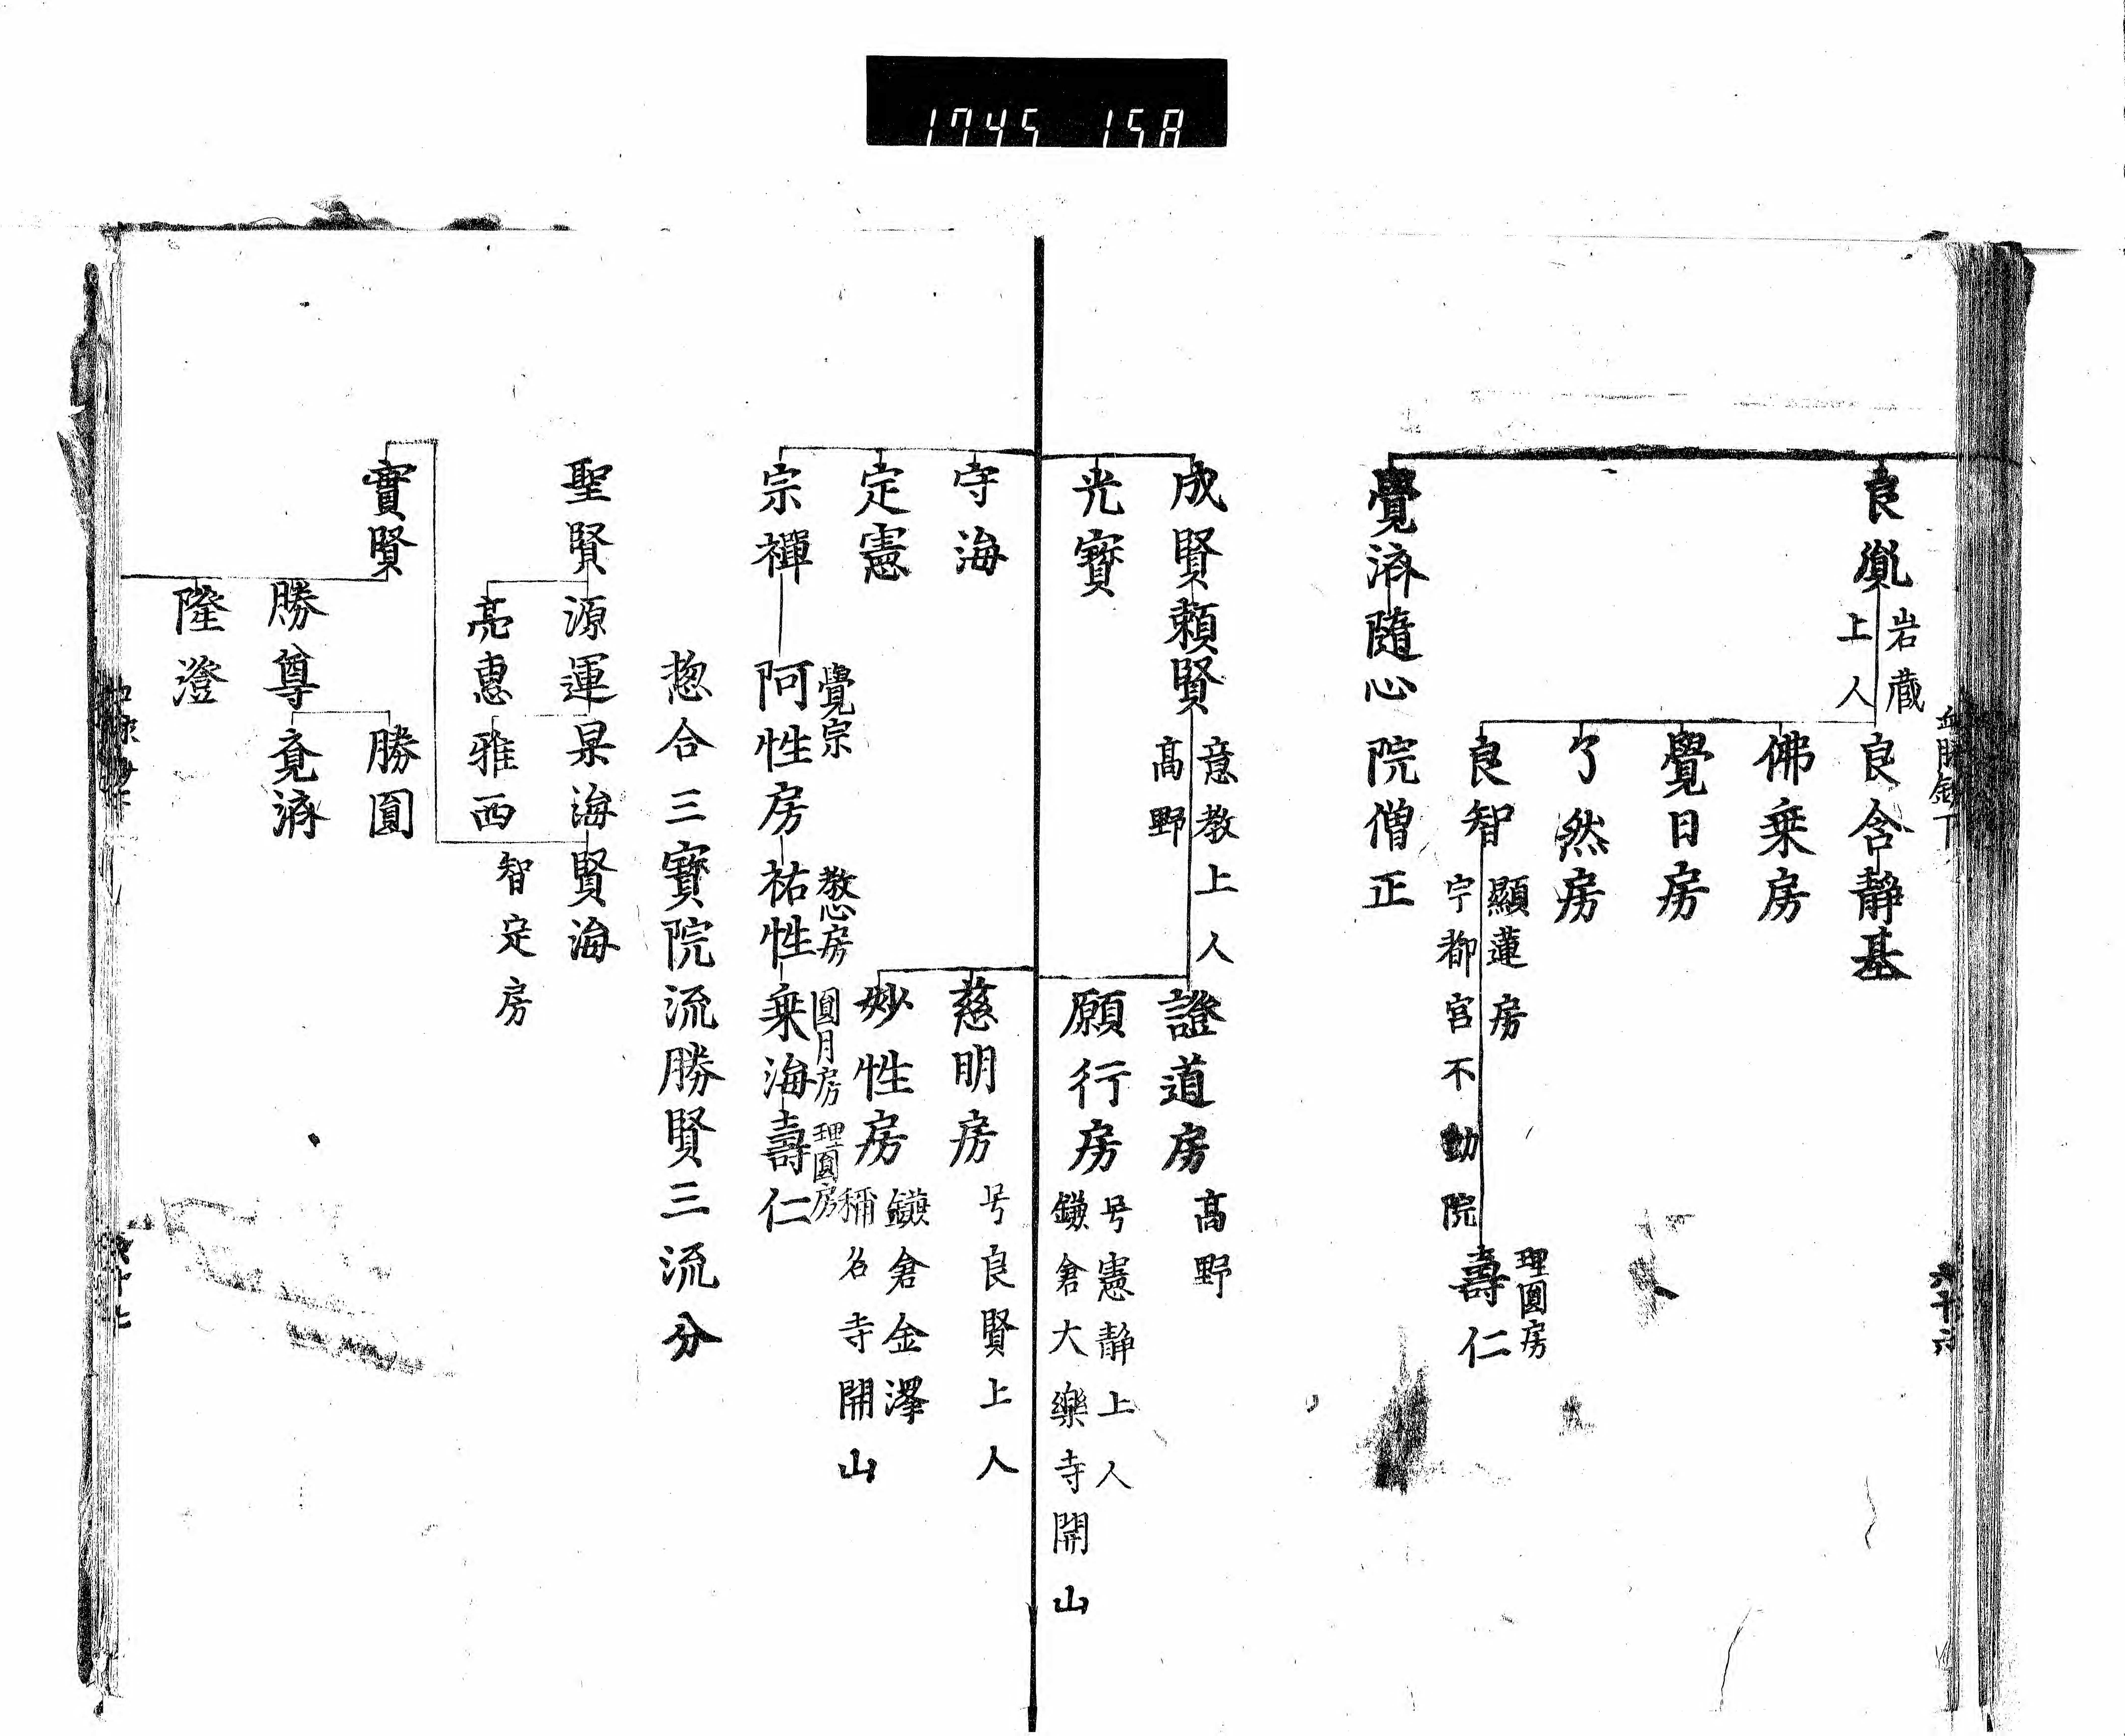 1745 158
血脉鈔下
六十六
良胤
岩蔵
上人
良含静基
佛乗房
覺日房
了然房
良智
顯蓮房
宇都宮不動院
理圓房
壽仁
覺済随心院僧正
成賢頼賢
意教上人
高野
證道房
高野
願行房
号憲静上人
鎌倉大樂寺開山
光寶
守海
慈明房
号良賢上人
定憲
妙性房
鎌倉金澤
稱名寺開山
宗禪
覺宗
阿性房
教心房
祐性
圓月房
乗海
理圓房
壽仁
惣合三寶院流勝賢三流分
聖賢源運杲海賢海
亮惠雅西
智定房
實賢
勝圓
勝尊
覚済
隆澄